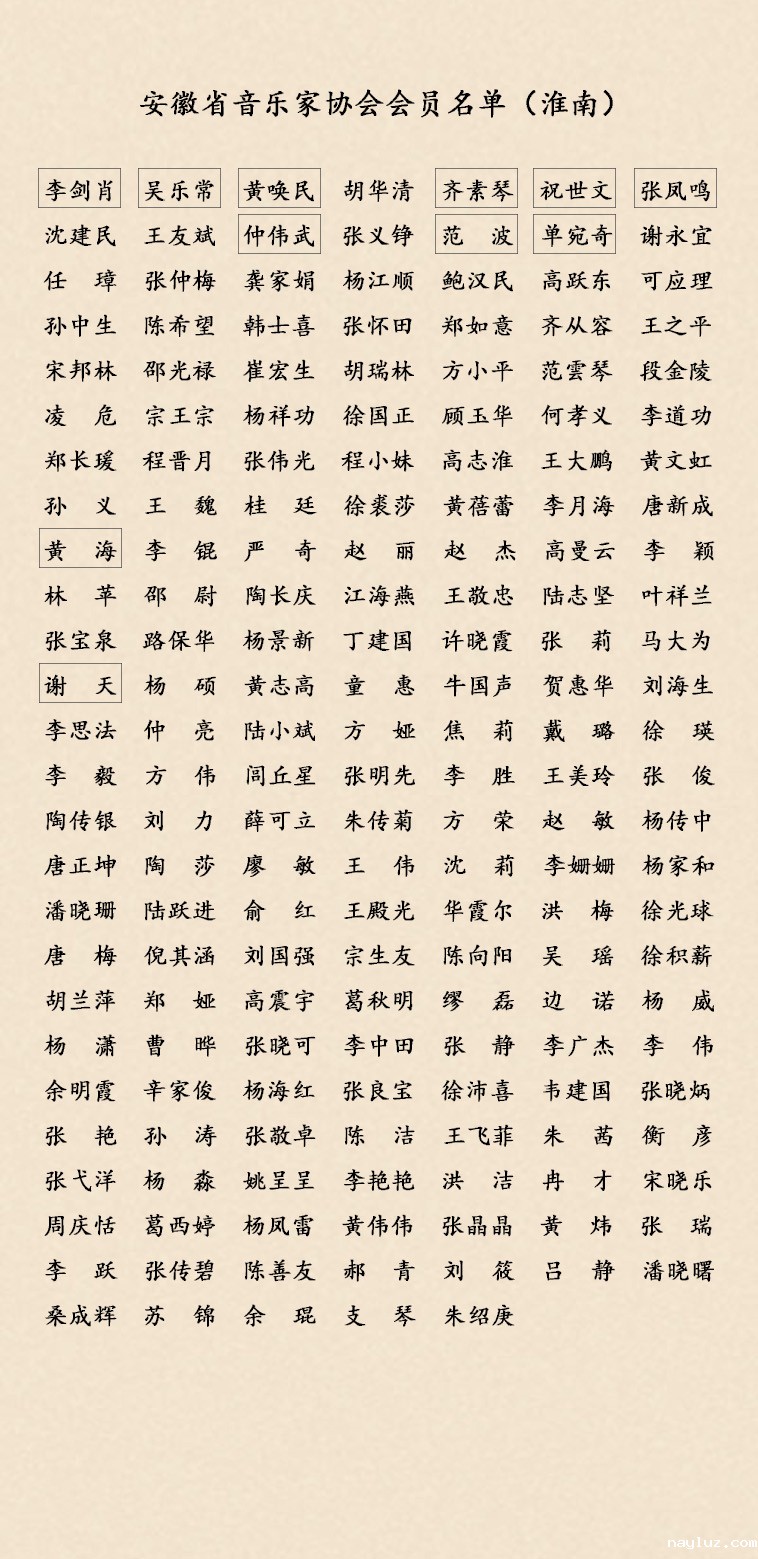 安徽省音乐家协会会员名单（淮南）
李剑肖 吴乐常 黄唤民 胡华清 齐素琴 祝世文 张凤鸣
沈建民 王友斌 仲伟武 张义铮 范波 单宛奇 谢永宜
任璋 张仲梅 龚家娟 杨江顺 鲍汉民 高跃东 可应理
孙中生 陈希望 韩士喜 张怀田 郑如意 齐从容 王之平
宋邦林 邵光禄 崔宏生 胡瑞林 方小平 范雲琴 段金陵
凌危 宗王宗 杨祥功 徐国正 顾玉华 何孝义 李道功
郑长瑗 程晋月 张伟光 程小妹 高志淮 王大鹏 黄文虹
孙义 王魏 桂廷 徐裘莎 黄蓓蕾 李月海 唐新成
黄海 李锟 严奇 赵丽 赵杰 高曼云 李颖
林苹 邵尉 陶长庆 江海燕 王敬忠 陆志坚 叶祥兰
张宝泉 路保华 杨景新 丁建国 许晓霞 张莉 马大为
谢天 杨硕 黄志高 童惠 牛国声 贺惠华 刘海生
李思法 仲亮 陆小斌 方娅 焦莉 戴璐 徐瑛
李毅 方伟 闾丘星 张明先 李胜 王美玲 张俊
陶传银 刘力 薛可立 朱传菊 方荣 赵敏 杨传中
唐正坤 陶莎 廖敏 王伟 沈莉 李姗姗 杨家和
潘晓珊 陆跃进 俞红 王殿光 华霞尔 洪梅 徐光球
唐梅 倪其涵 刘国强 宗生友 陈向阳 吴瑶 徐积薪
胡兰萍 郑娅 高震宇 葛秋明 缪磊 边诺 杨威
杨潇 曹晔 张晓可 李中田 张静 李广杰 李伟
余明霞 辛家俊 杨海红 张良宝 徐沛喜 韦建国 张晓炳
张艳 孙涛 张敬卓 陈洁 王飞菲 朱茜 衡彦
张弋洋 杨淼 姚呈呈 李艳艳 洪洁 冉才 宋晓乐
周庆恬 葛西婷 杨凤雷 黄伟伟 张晶晶 黄炜 张瑞
李跃 张传碧 陈善友 郝青 刘筱 吕静 潘晓曙
桑成辉 苏锦 余琨 支琴 朱绍庚
nayluz.com